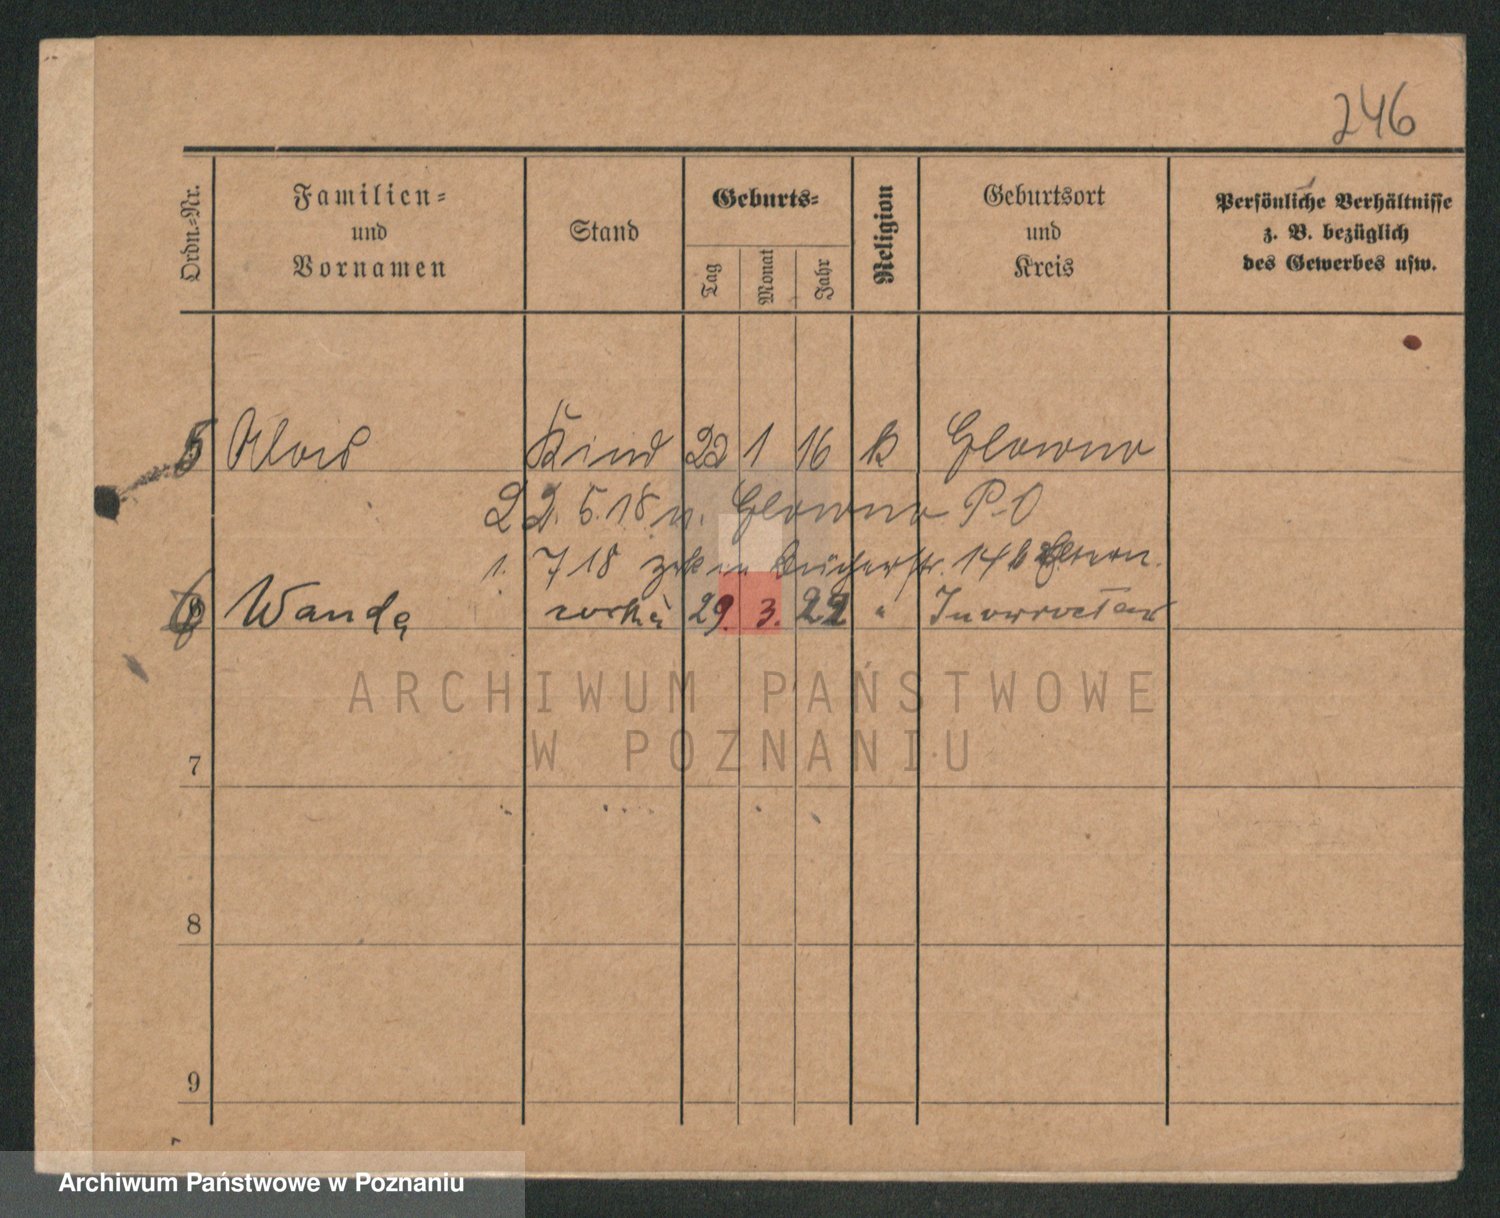 246
Ordn.=Nr.
Familien=
und
Vornamen
Stand
Geburts=
Tag
Monat
Jahr
Religion
Geburtsort
und
Kreis
Persönliche Verhältnisse
z. B. bezüglich
des Gewerbes usw.
5 Alois Kind 22 1 16 k Glowno
22. 5. 18 n. Glowno P-O
1. 7 18 14 b Eltern.
6 Wanda córka 29. 3. 22 " Inowrocław
ARCHIWUM PAŃSTWOWE
W POZNANIU
7
8
9
Archiwum Państwowe w Poznaniu